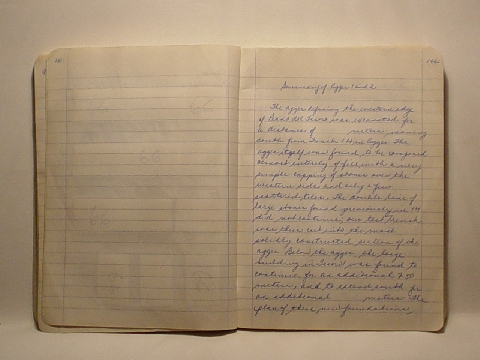 Summary of Agger 1 and 2
The agger defining the western edge
of was excavated for
a distance of meters running
south from Trench
agger itself was found to be composed
almost entirely of fill with a very
simple capping of stones over the
western side and only a few
scattered tiles. The double line of
large stones found previously in
did not continue; our test trench
was then cut into the most
solidly constructed section of the
agger. Below the agger, the large
building in was found to
continue for an additional 7.50
meters, and to extend south for
an additional meters. The
plan of these new foundations